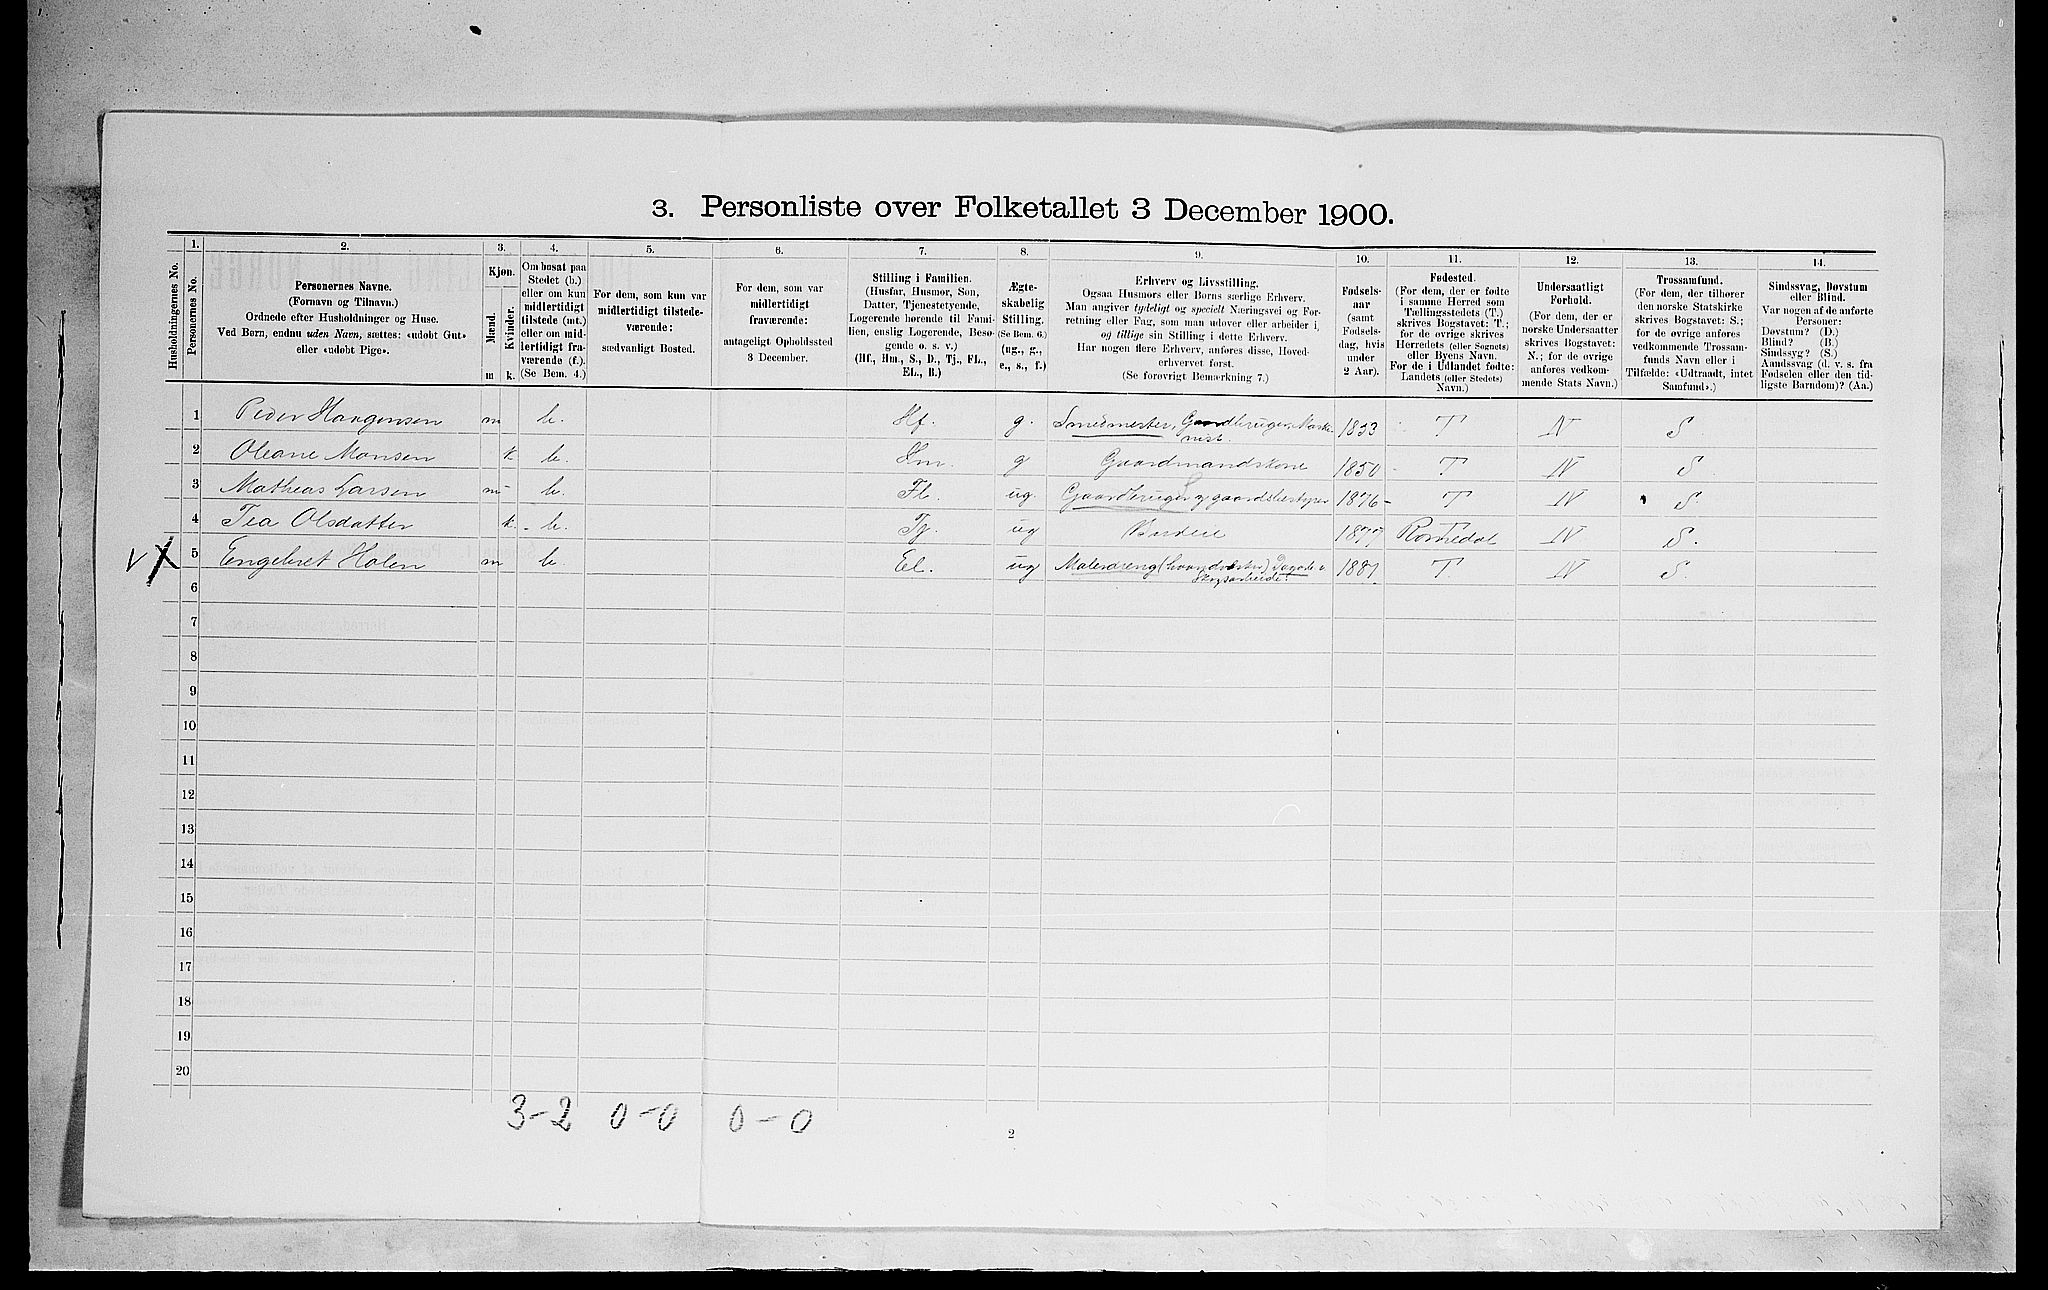 3. Personliste over Folketallet 3 December 1900.
1. 2. 3. 4. 5. 6. 7. 8. 9. 10. 11. 12. 13. 14.
Husholdningernes No.
Personernes No.
Personernes Navne.
(Fornavn og Tilnavn.)
Ordnede efter Husholdninger og Huse.
Ved Børn, endnu uden Navn, sættes: «udøbt Gut»
eller «udøbt Pige».
Kjøn.
Mænd.
Kvinder.
m k.
Om bosat paa
Stedet (b.)
eller om kun
midlertidigt
tilstede (mt.)
eller om mid-
lertidigt fra-
værende (f.).
(Se Bem. 4.)
For dem, som kun var
midlertidigt tilstede-
værende:
sædvanligt Bosted.
For dem, som var
midlertidigt
fraværende:
antageligt Opholdssted
3 December.
Stilling i Familien.
(Husfar, Husmor, Søn,
Datter, Tjenestetyende,
Logerende hørende til Fami-
lien, enslig Logerende, Besø-
gende o. s. v.)
(Hf., Hm., S., D., Tj., FL.,
EL., B.)
Ægte-
skabelig
Stilling.
(Se Bem. 6.)
(ug., g.,
e., s., f.)
Erhverv og Livsstilling.
Ogsaa Husmors eller Børns særlige Erhverv.
Man angiver tydeligt og specielt Næringsvei og For-
retning eller Fag, som man udover eller arbeider i,
og tillige sin Stilling i dette Erhverv.
Har nogen flere Erhverv, anføres disse, Hoved-
erhvervet først.
(Se forøvrigt Bemærkning 7.)
Fødsels-
aar
(samt
Fødsels-
dag, hvis
under
2 Aar).
Fødested.
(For dem, der er fødte
i samme Herred som
Tællingsstedets (T.)
skrives Bogstavet: T.;
for de øvrige skrives
Herredets (eller Sognets)
eller Byens Navn.
For de i Udlandet fødte:
Landets (eller Stedets)
Navn.)
Undersaatligt
Forhold.
(For dem, der er
norske Undersaatter
skrives Bogstavet:
N.; for de øvrige
anføres vedkom-
mende Stats Navn.)
Trossamfund.
(For dem, der tilhører
den norske Statskirke
skrives Bogstavet: S.;
for de øvrige anføres
vedkommende Trossam-
funds Navn eller i
Tilfælde: «Udtraadt, intet
Samfund».)
Sindssvag, Døvstum
eller Blind.
Var nogen af de anførte
Personer:
Døvstum? (D.)
Blind? (B.)
Sindssyg? (S.)
Aandssvag (d. v. s. fra
Fødselen eller den tid-
ligste Barndom)? (Aa.)
1 Peder Haagensen m b. Hf. g. Smedmester, Gaardbruger, 1853 T N S
2 Oleane Monsen k b. Hm. g Gaardmandskone 1850 T N S
3 Matheas Larsen m b. Fl. ug. Gaardbruger og gaardsbestyrer 1876 T N S
4 Tea Olsdatter k. b. Tj. ug Budeie 1877 Romedal N S.
5 Engebret Holen m b. El. ug Malerdreng 1881 T N S
Skogsarbeide.
6
7
8
9
10
11
12
13
14
15
16
17
18
19
20
3-2 0-0 0-0
2